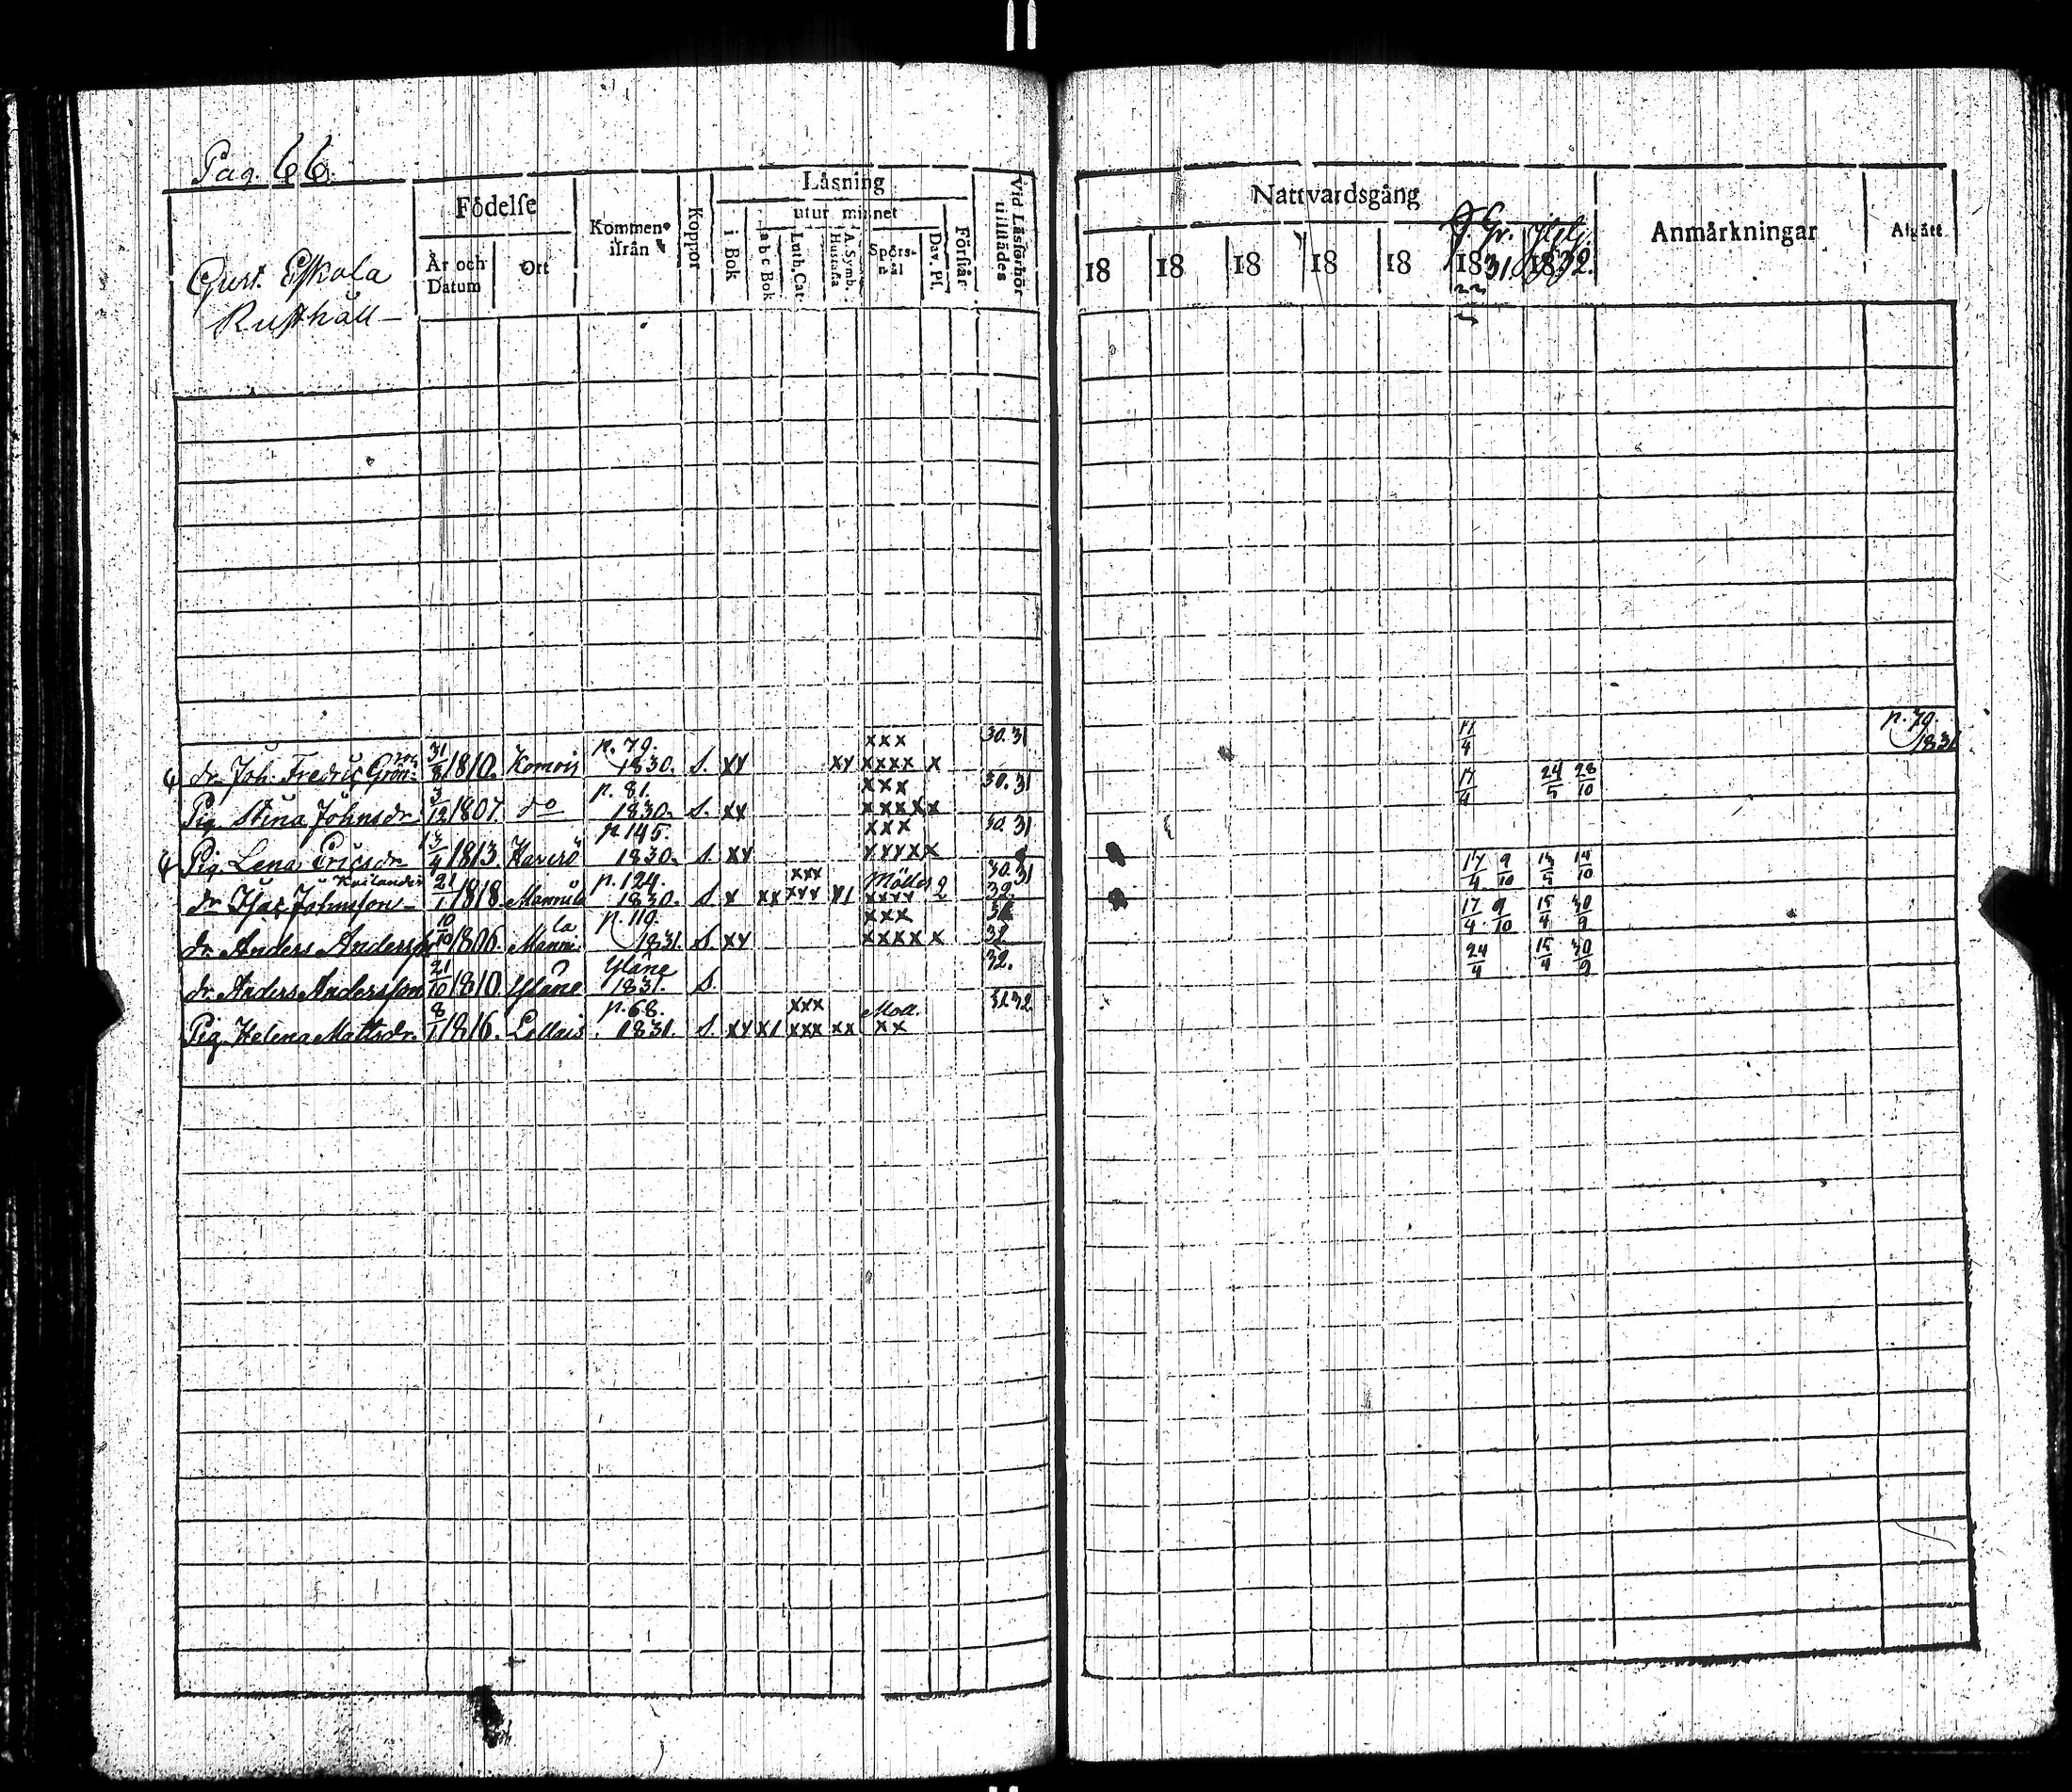 Pag. 66.
Gust. Eskola
Rusthåll
Födelse
År och Datum
Ort
Kommen ifrån
Koppor
Läsning
i Bok
utur minnet
a b c Bok
Luth. Cat
A. Symb. Hustafla
Spörsmål
Dav. Ps.
Förstår
Vid Läsförhör tillstädes
Nattvardsgång
18 18 18 18 18 1831 1832.
Anmårkningar
Afgått
dr Joh. Fredric Grön- 31/8 1810. Komois p. 79. 1830. S. xx xx xxx xxxx x 30. 31 17/4 p. 79. 1831
Pig. Stina Johnsdr 3/12 1807. do p. 81. 1830. S. xx xxx xxxxx 30. 31 17/4 24/5 28/10
Pig. Lena Ericsdr 13/4 1813 p. 145. 1830. S. xx xxx xxxxx 30. 31
dr Isac Johnsson 21/1 1818. p. 124. 1830. S. x xx xxx xxx Möller xxxx 30. 31 32. 17/4 9/10 15/4 14/10
dr Anders Andersson 10/10 1806. p. 110. 1831. S. xx xxx xxxx x 32 17/4 9/10 15/4 30/9
dr Anders Andersson 21/10 1810. Yläne Yläne 1831. S. 32. 24/4 15/4 30/9
Pig Helena Mattsdr. 8/1 1816. Lellais p. 68. 1831. S. xx x1 xxx xxx xx Moll. xx 31 32